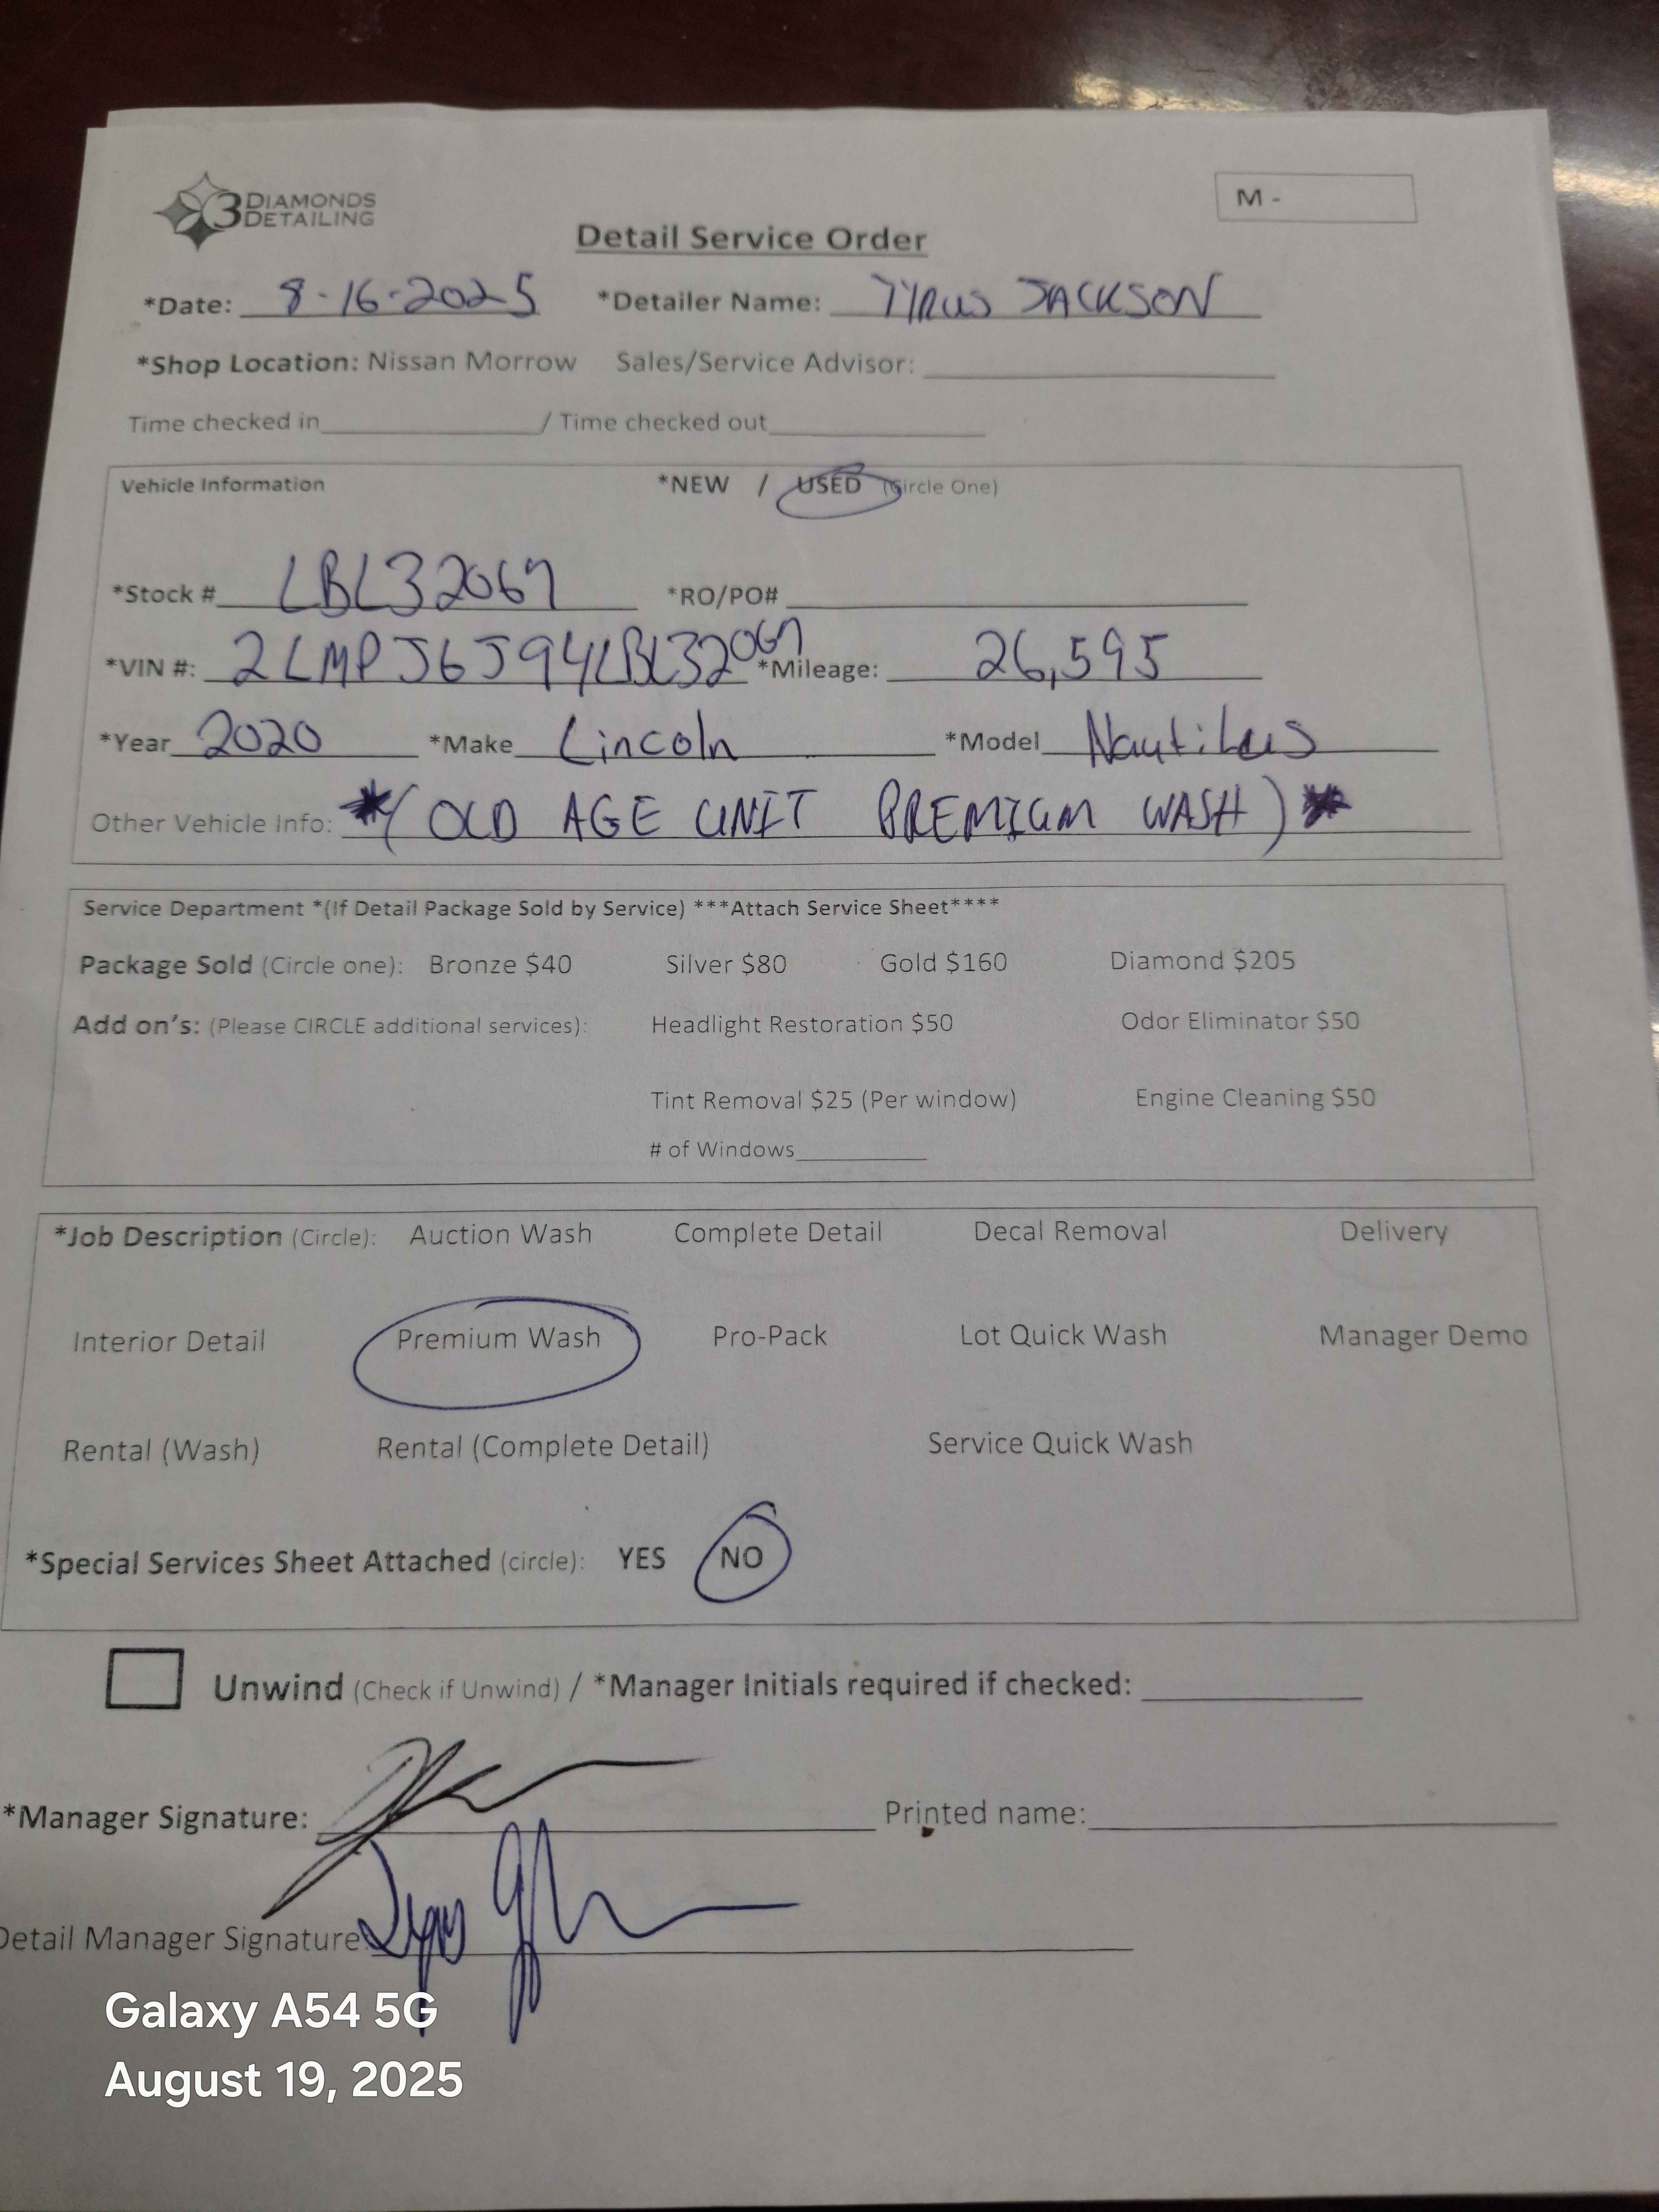 3 DIAMONDS DETAILING
M -
Detail Service Order
*Date: 8-16-2025 *Detailer Name: TYRUS JACKSON
*Shop Location: Nissan Morrow Sales/Service Advisor:
Time checked in / Time checked out
Vehicle Information *NEW / USED (Circle One)
*Stock # LBL32067 *RO/PO#
*VIN #: 2LMPJ6J94LBL32067 *Mileage: 26,595
*Year 2020 *Make Lincoln *Model Nautilus
Other Vehicle Info: *(OLD AGE UNIT PREMIUM WASH)*
Service Department *(If Detail Package Sold by Service) ***Attach Service Sheet****
Package Sold (Circle one): Bronze $40 Silver $80 Gold $160 Diamond $205
Add on's: (Please CIRCLE additional services): Headlight Restoration $50 Odor Eliminator $50
Tint Removal $25 (Per window) Engine Cleaning $50
# of Windows
*Job Description (Circle): Auction Wash Complete Detail Decal Removal Delivery
Interior Detail Premium Wash Pro-Pack Lot Quick Wash Manager Demo
Rental (Wash) Rental (Complete Detail) Service Quick Wash
*Special Services Sheet Attached (circle): YES NO
Unwind (Check if Unwind) / *Manager Initials required if checked:
*Manager Signature: Printed name:
Detail Manager Signature:
Galaxy A54 5G
August 19, 2025